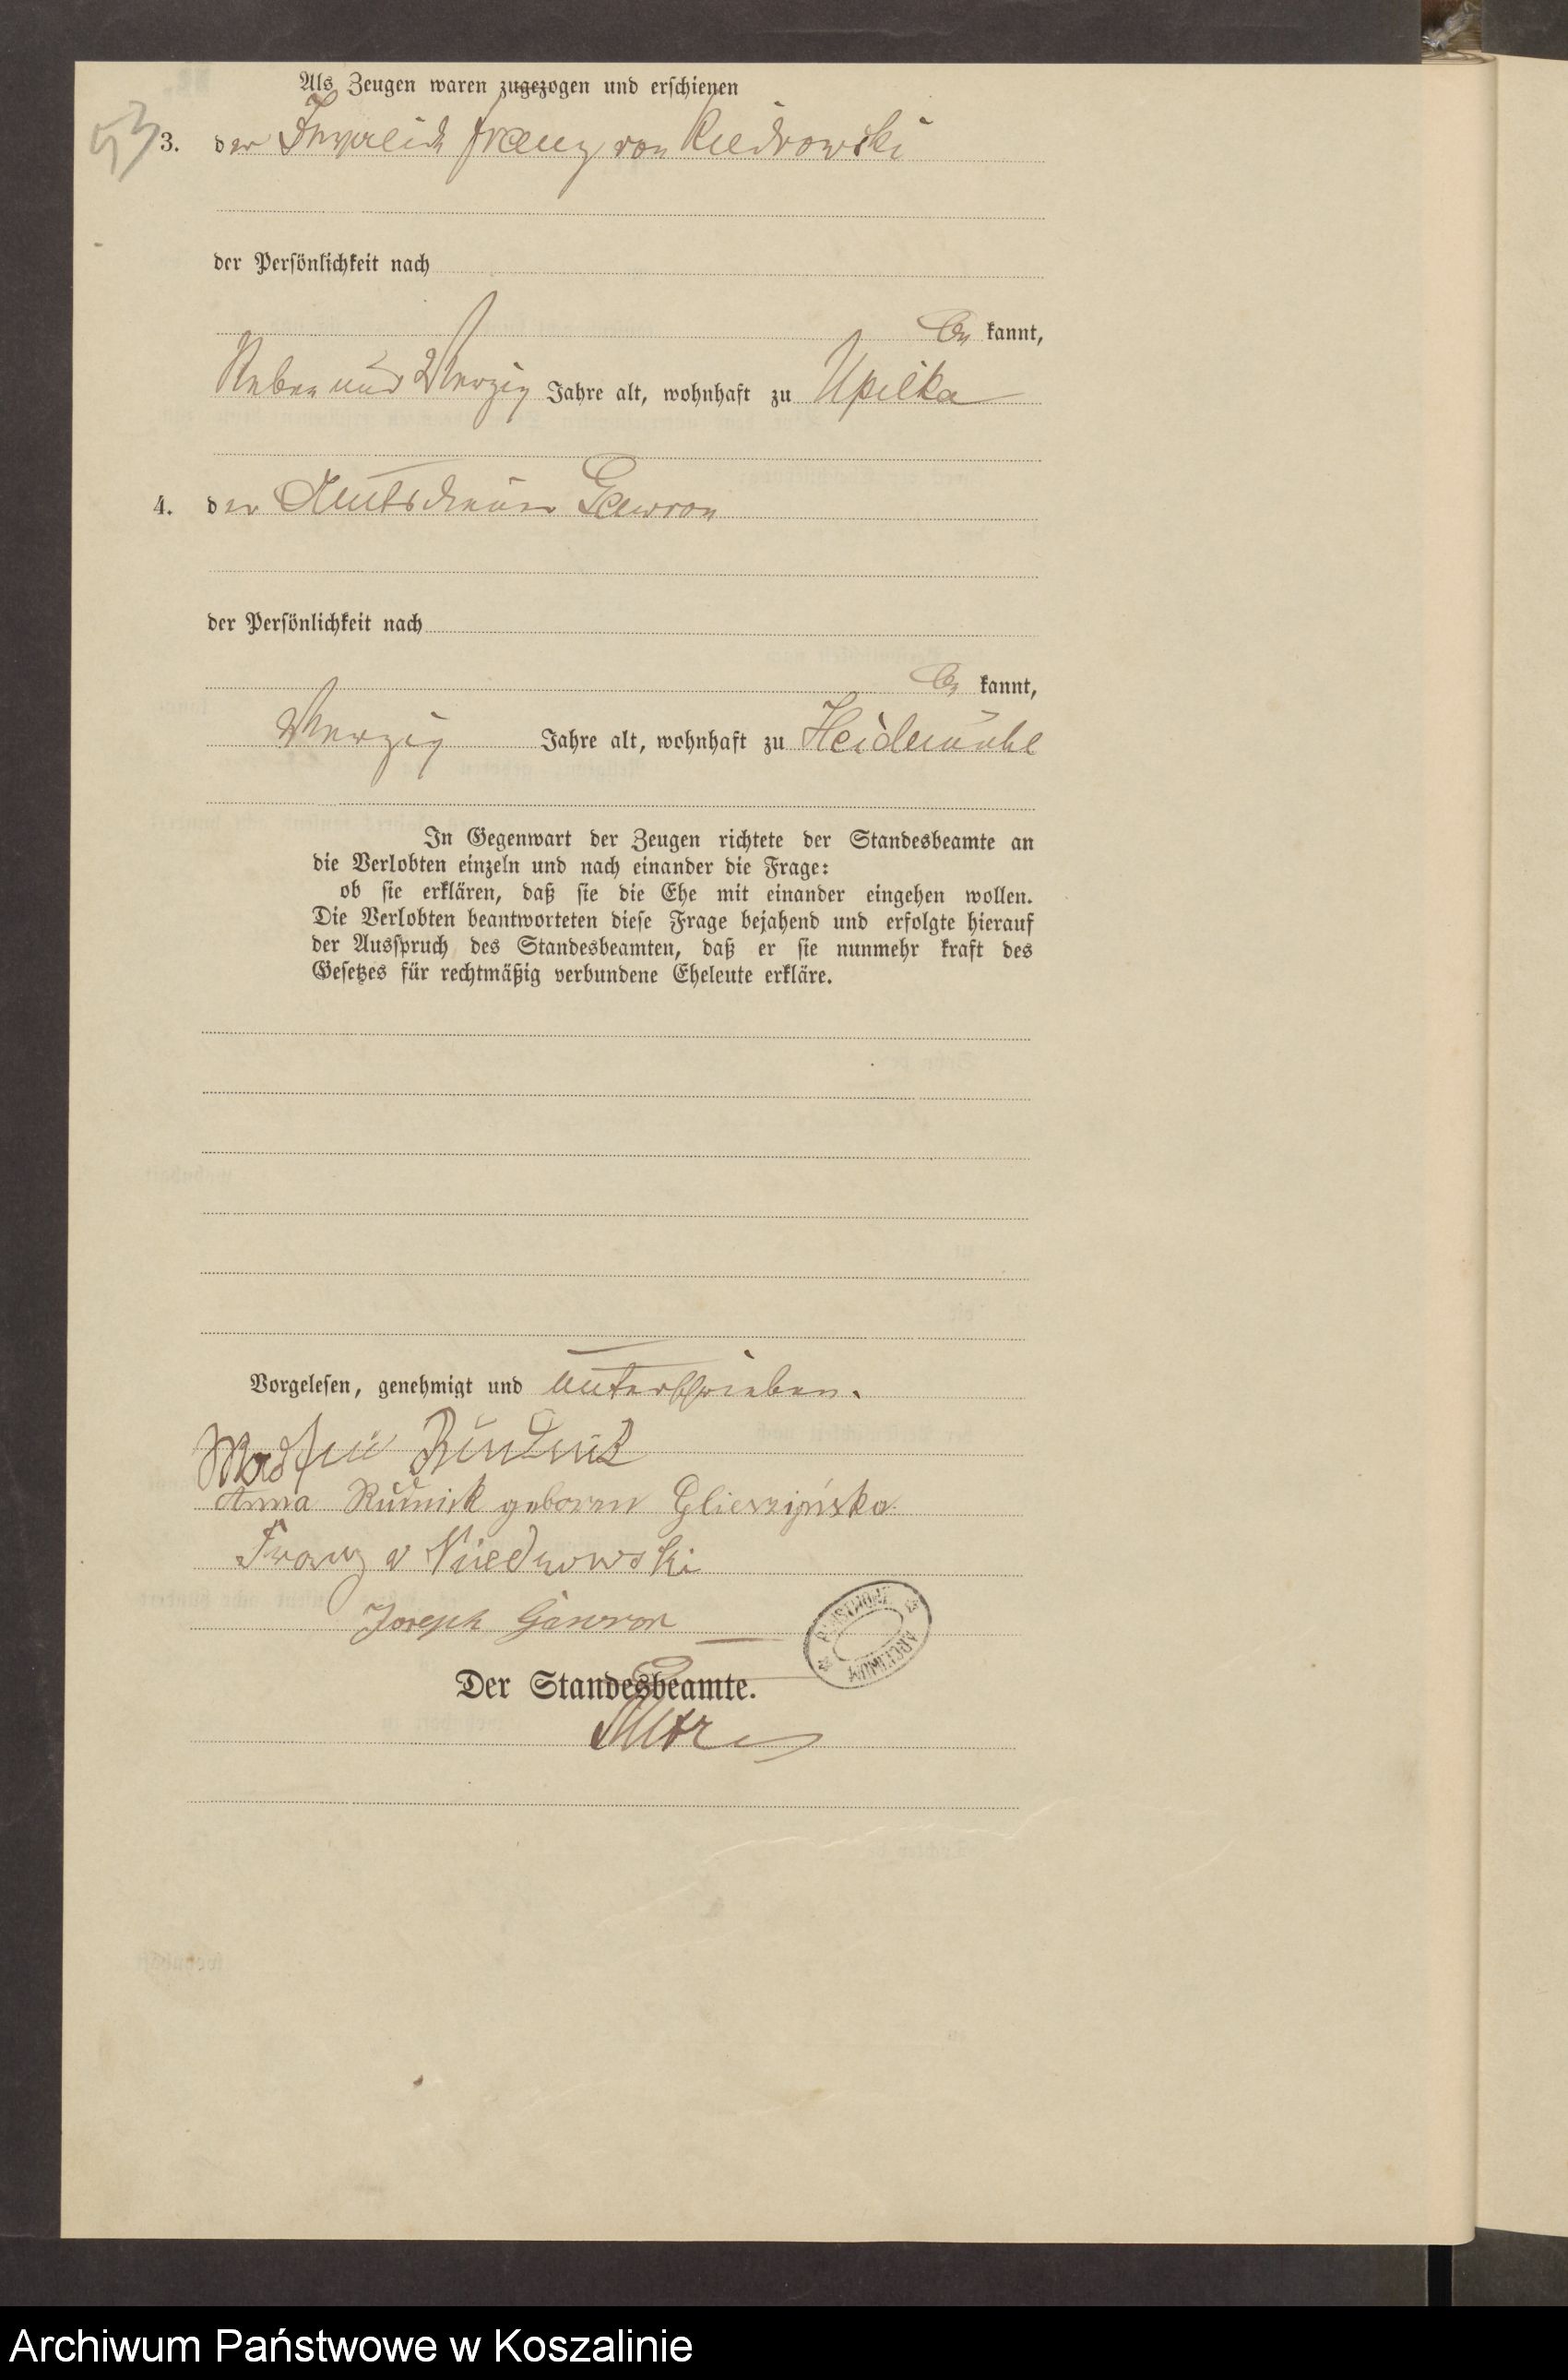 Als Zeugen waren zugezogen und erschienen
53
3. der Invalide Franz von Kiedrowski
der Persönlichkeit nach
be kannt,
sieben und vierzig Jahre alt, wohnhaft zu Upilka
4. der Amtsdiener Gawron
der Persönlichkeit nach
be kannt,
vierzig Jahre alt, wohnhaft zu Heidemühl
In Gegenwart der Zeugen richtete der Standesbeamte an
die Verlobten einzeln und nach einander die Frage:
ob sie erklären, daß sie die Ehe mit einander eingehen wollen.
Die Verlobten beantworteten diese Frage bejahend und erfolgte hierauf
der Ausspruch des Standesbeamten, daß er sie nunmehr kraft des
Gesetzes für rechtmäßig verbundene Eheleute erkläre.
Vorgelesen, genehmigt und unterschrieben.
Rudnik
Anna Rudnik geboren
Franz v Kiedrowski
Joseph Gawron
ARCHIWUM
Der Standesbeamte.
Archiwum Państwowe w Koszalinie